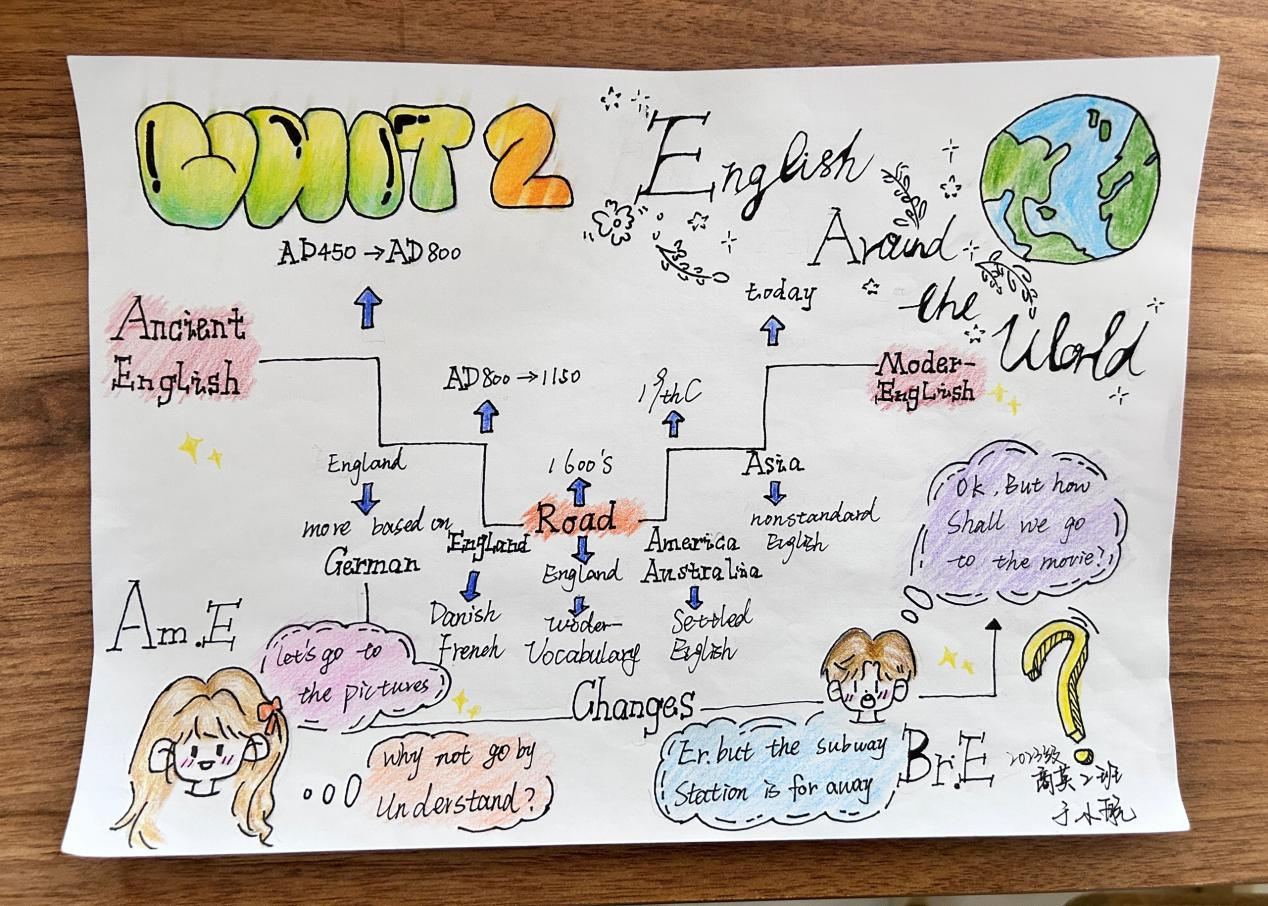 UNIT 2
English
Around
the
World
AD450→AD800
Ancient
English
AD800→1150
19thC
today
Moder-
English
England
more based on
German
England
Danish
French
1600's
Road
England
Wider-
Vocabulary
America
Australia
Settled
English
Asia
nonstandard
English
Am.E
let's go to
the pictures
Why not go by
Understand?
Changes
Er. but the subway
Station is for away
Br.E
Ok. But how
Shall we go
to the movie?
?
2023级
商英2班